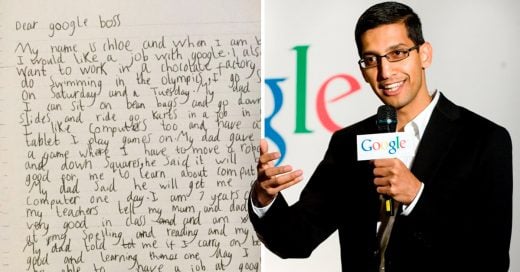 Dear google boss
My name is chloe and when I am b
I would like a job with google. I also
Want to work in a chocolate factory
do swimming in the olympics. I go s
on Saturday and a Tuesday. My dad
I can sit on bean bags and go down
slides and ride go karts in a job in
I like computers too and have a
tablet I play games on. My dad gave
a game where I have to move a robo
and down squares, he said it will
good for, me to learn about comput
My dad said he will get me
computer one day. I am 7 years o
my teachers tell my mum and dad
very good in class and and am
at my spelling and reading and my
my dad told me if I carry on be
good and learning one May I
able to have a job at goog
gle
Google